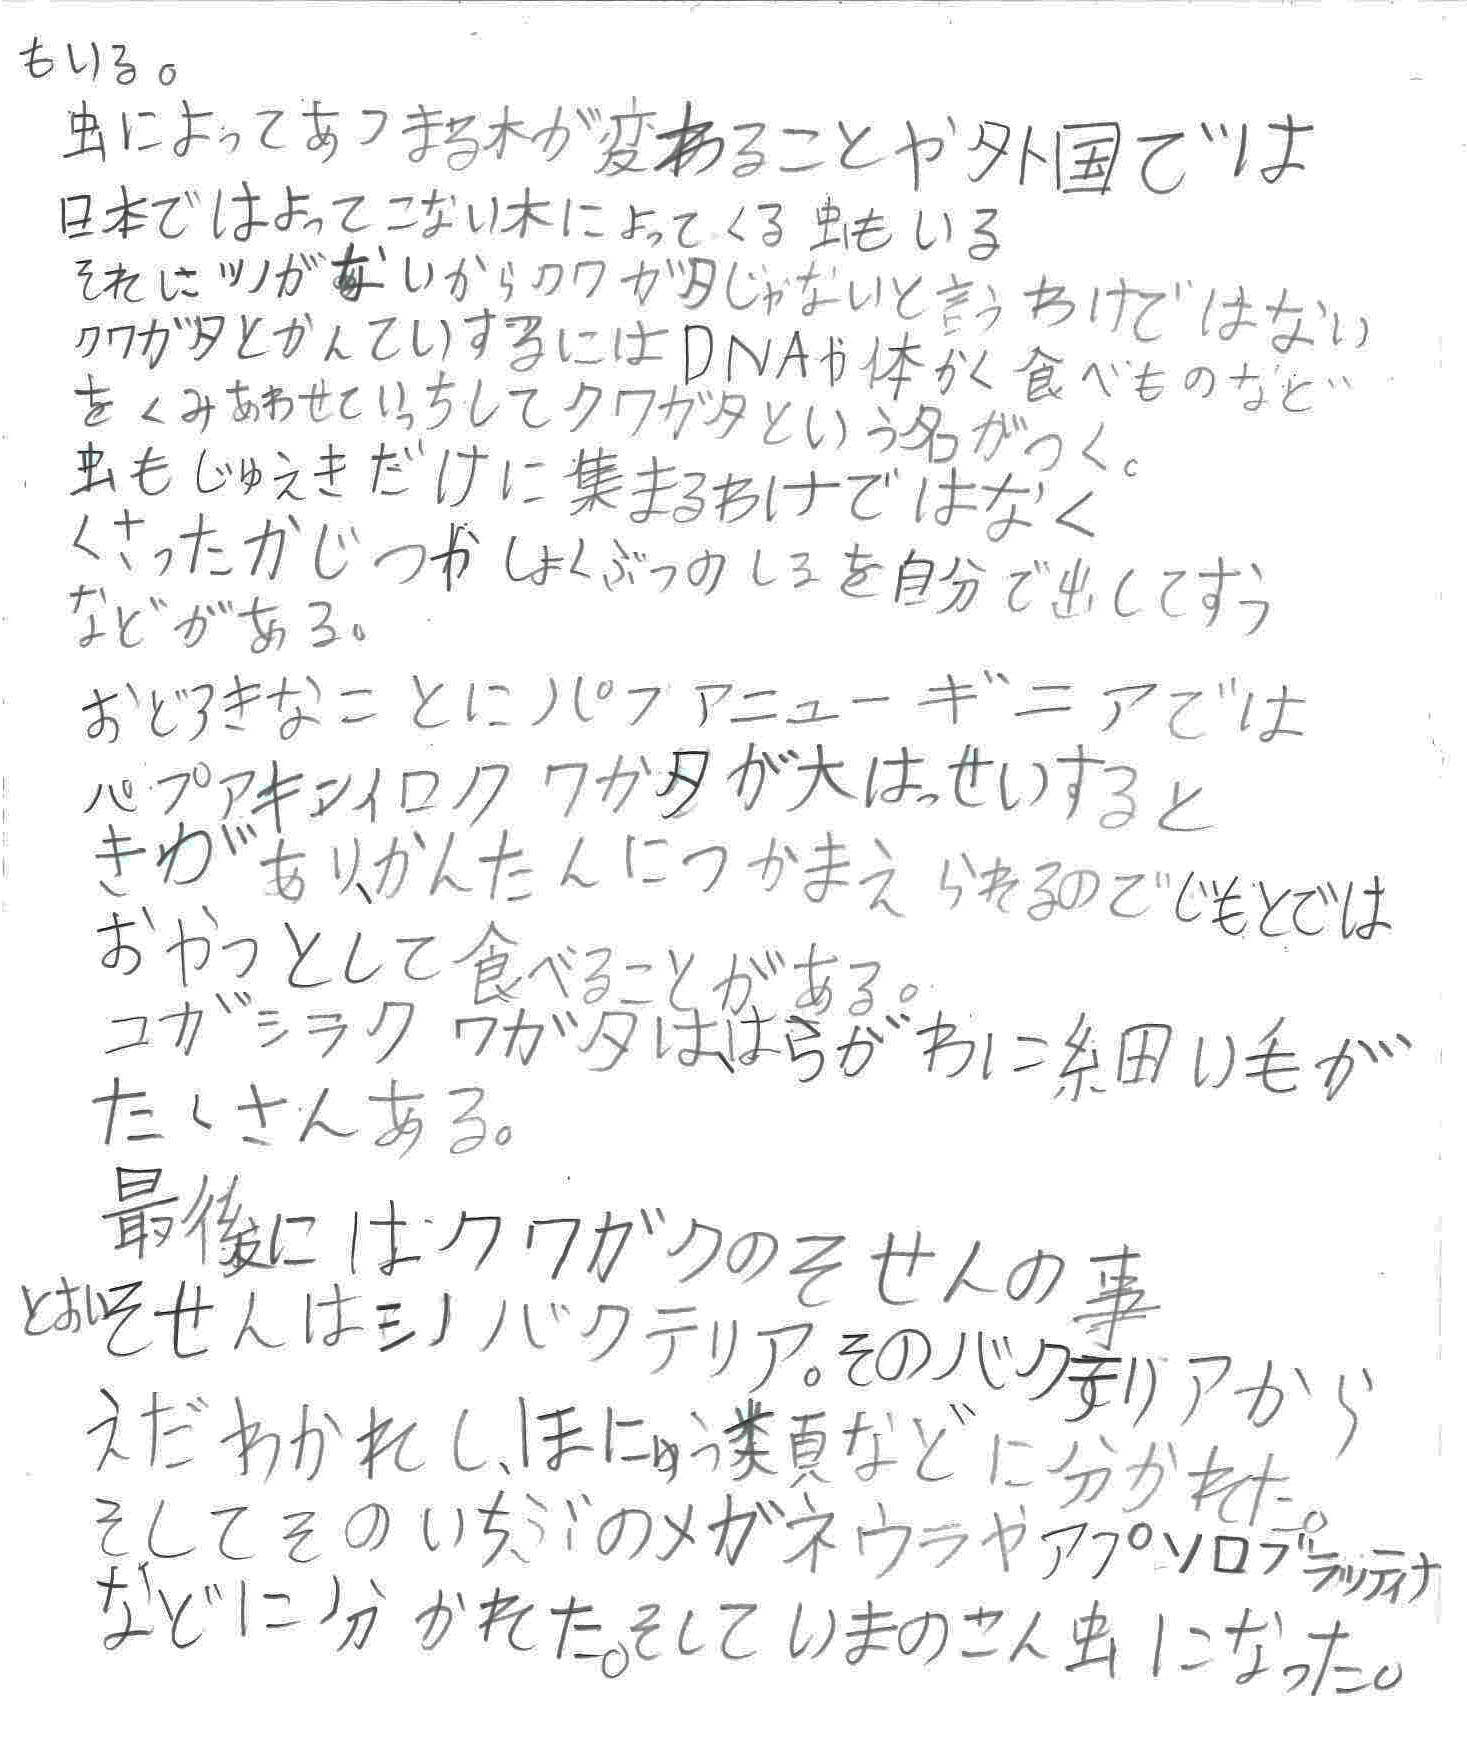 もいる。
虫によってあつまる木が変わることや外国では
日本ではよってこない木によってくる虫もいる
それにツノがないからクワガタじゃないと言うわけではない
クワガタとかんていするにはDNAや体かく食べものなど
をくみあわせていっちしてクワガタという名がつく。
虫もじゅえきだけに集まるわけではなく
くさったかじつやしょくぶつのしるを自分で出してすう
などがある。
おどろきなことにパプアニューギニアでは
パプアキンイロクワガタが大はっせいすると
きがあり、かんたんにつかまえられるのでじもとでは
おやつとして食べることがある。
コガシラクワガタは、はらがわに細い毛が
たくさんある。
最後にはクワガクのそせんの事
とおいそせんはシノバクテリア。そのバクテリアから
えだわかれし、ほにゅう類などに分かれた。
そしてそのいちぶのメガネウラやアプソロブラッティナ
などに分かれた。そしていまのこん虫になった。